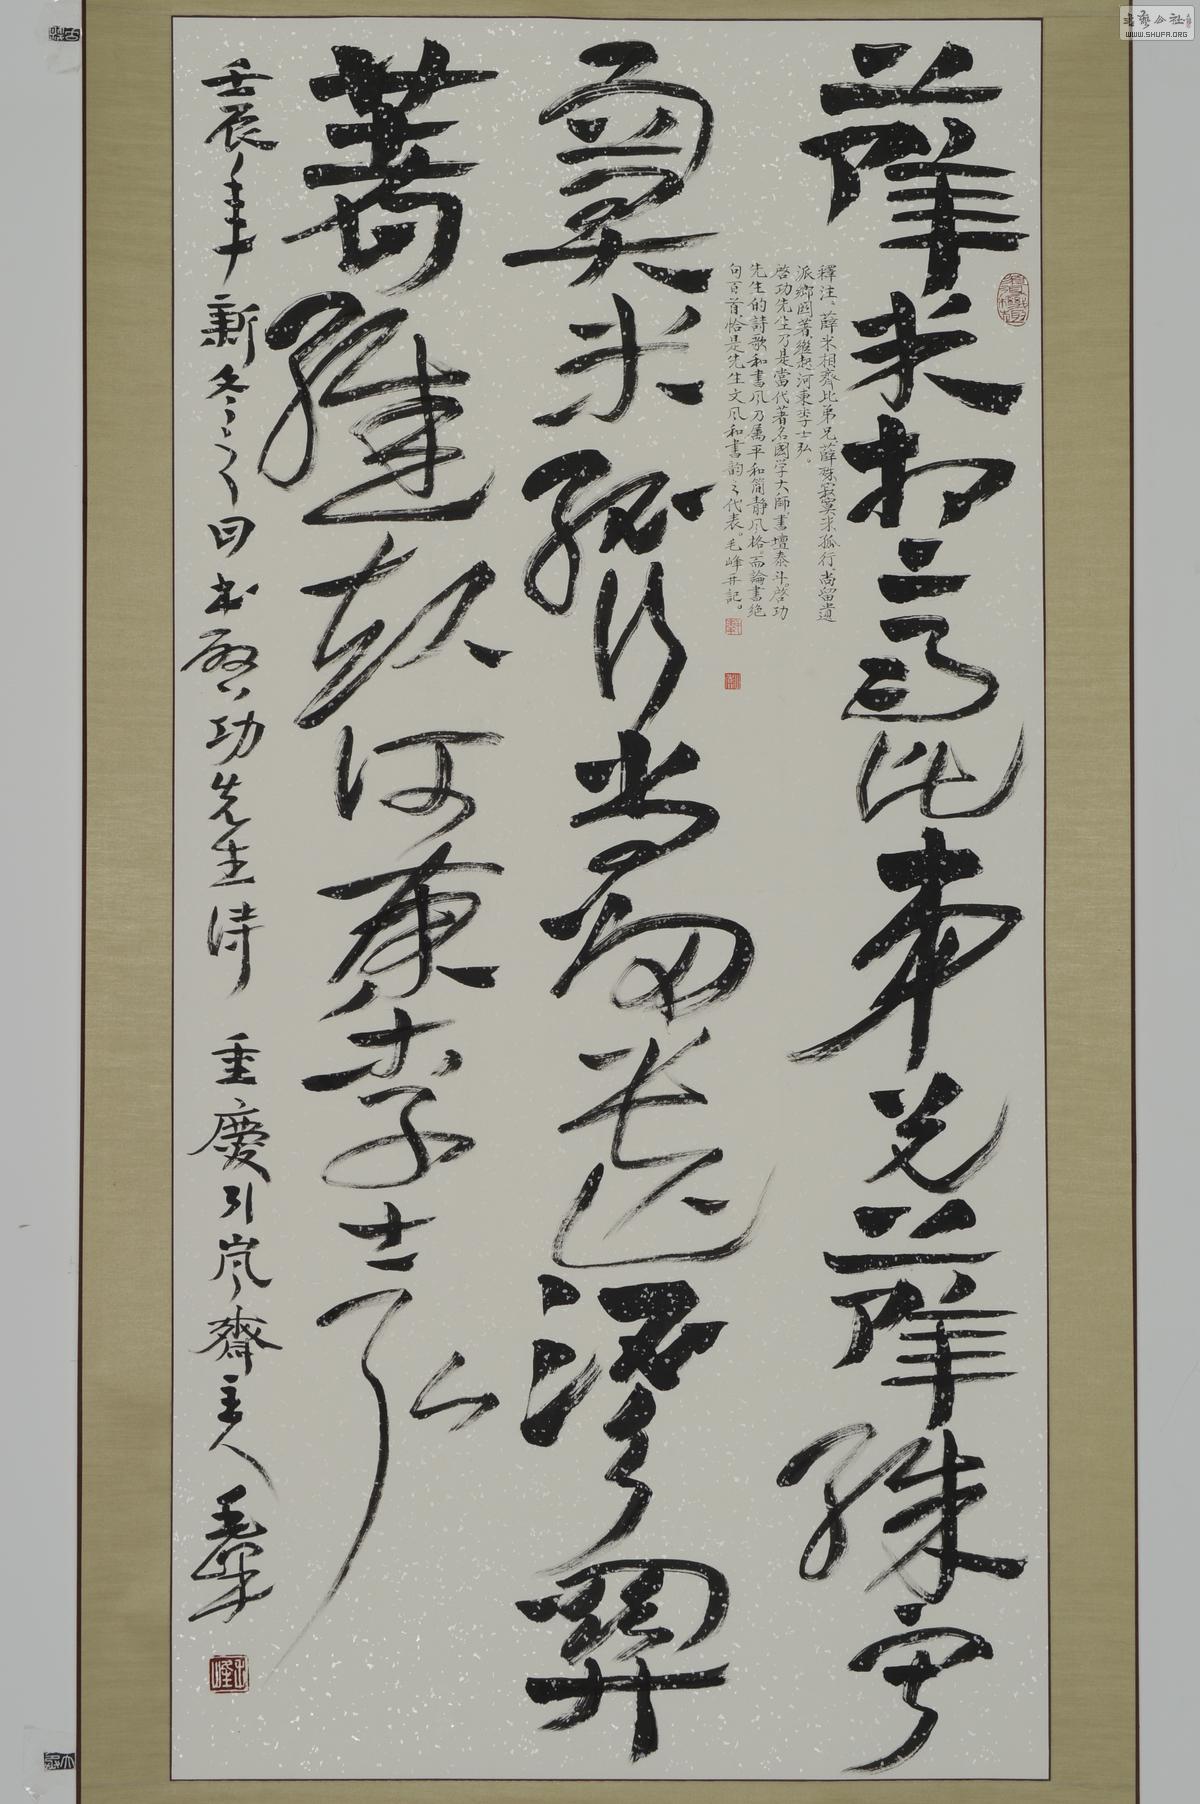 薛米相齊比弟兄薛殊寂
寞米孤行尚留遺派鄉關
著繼起河東李士弘
釋注：薛米相齊比弟兄薛殊寂寞米孤行尚留遺
派鄉國著繼起河東李士弘。
啓功先生乃是當代著名國学大师書壇泰斗。啓功
先生的詩歌和書风乃属平和简静风格。而論書绝
句百首恰是先生文风和書韵之代表。毛峰并記。
壬辰年新冬之日书啟功先生诗 重慶引嵐齋主人 毛峰
WWW.SHUFA.ORG